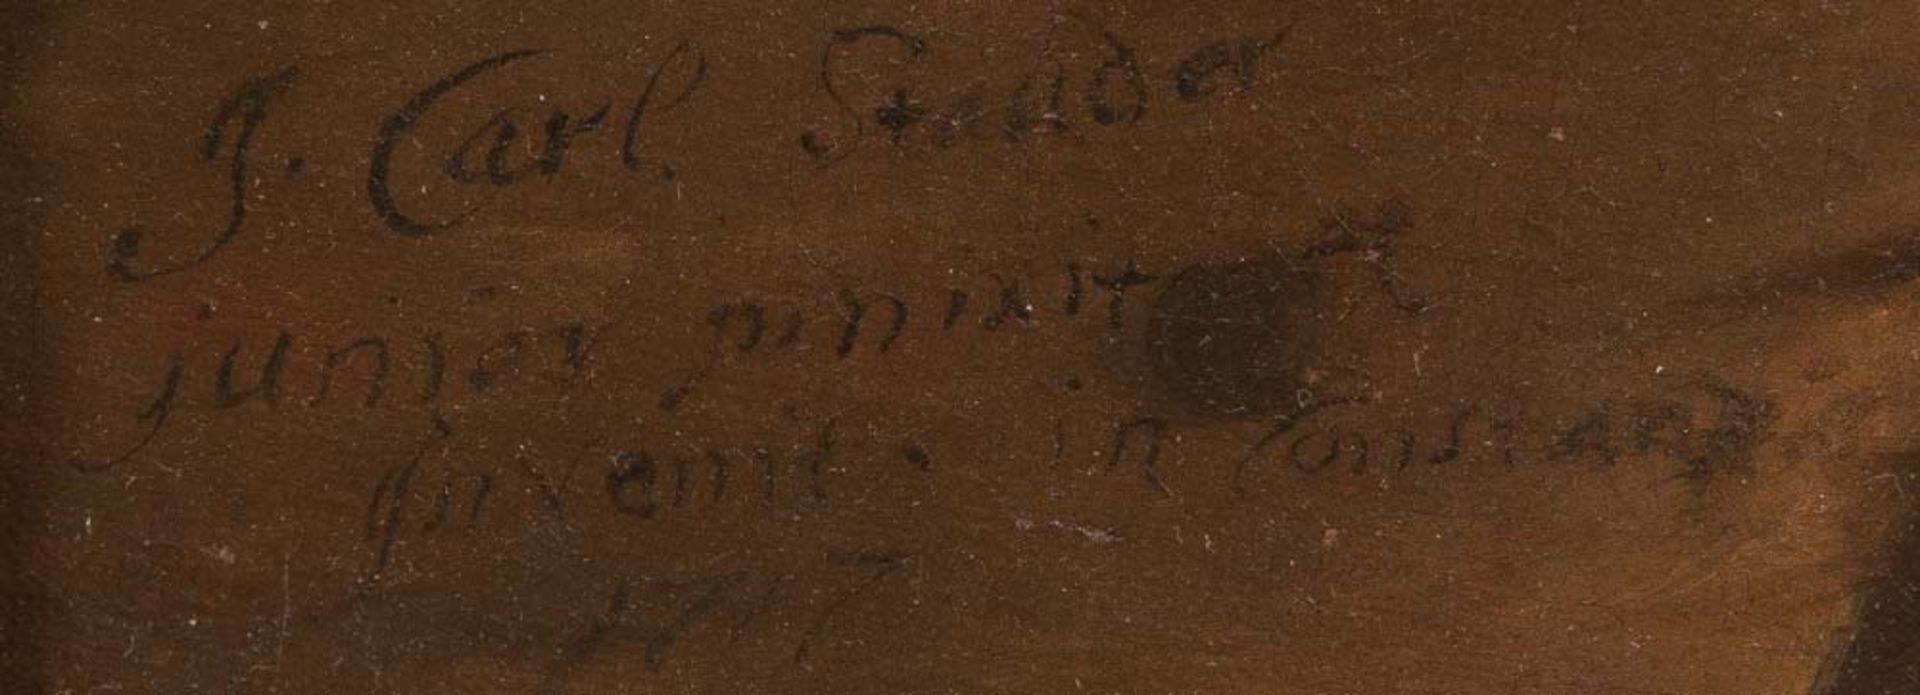 J. Carl Stauder
junior pinxit et
Invenit. in Constantz
1717